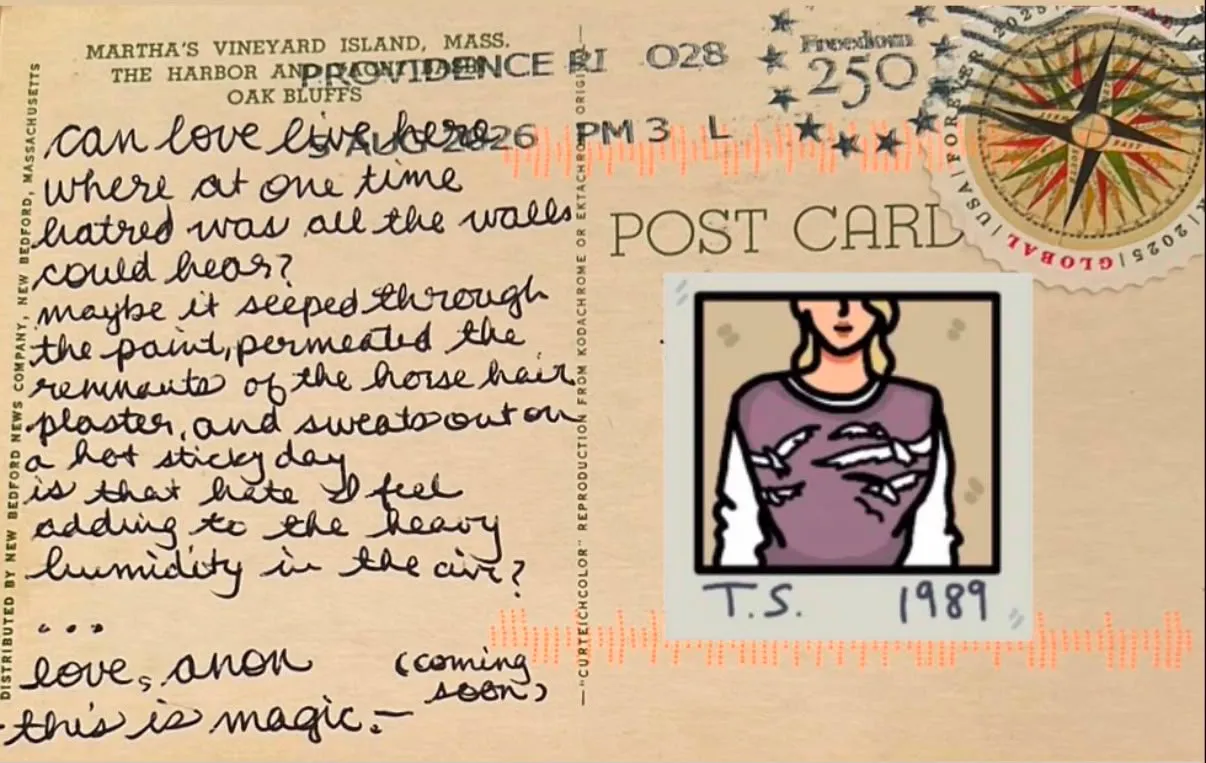 MARTHA'S VINEYARD ISLAND, MASS.
THE HARBOR AND
OAK BLUFFS
PROVIDENCE RI 028
5 AUG 2026 PM 3 L
Freedom
250
FOREVER / USA / GLOBAL / 2025
POST CARD
can love live here
where at one time
hatred was all the walls
could hear?
maybe it seeped through
the paint, permeated the
remnants of the horse hair
plaster, and sweats out on
a hot sticky day
is that hate I feel
adding to the heavy
humidity in the air?
...
love, anon (coming
soon)
-this is magic.-
DISTRIBUTED BY NEW BEDFORD NEWS COMPANY, NEW BEDFORD, MASSACHUSETTS
—"CURTEICHCOLOR" REPRODUCTION FROM KODACHROME OR EKTACHROME ORIGI
T.S. 1989